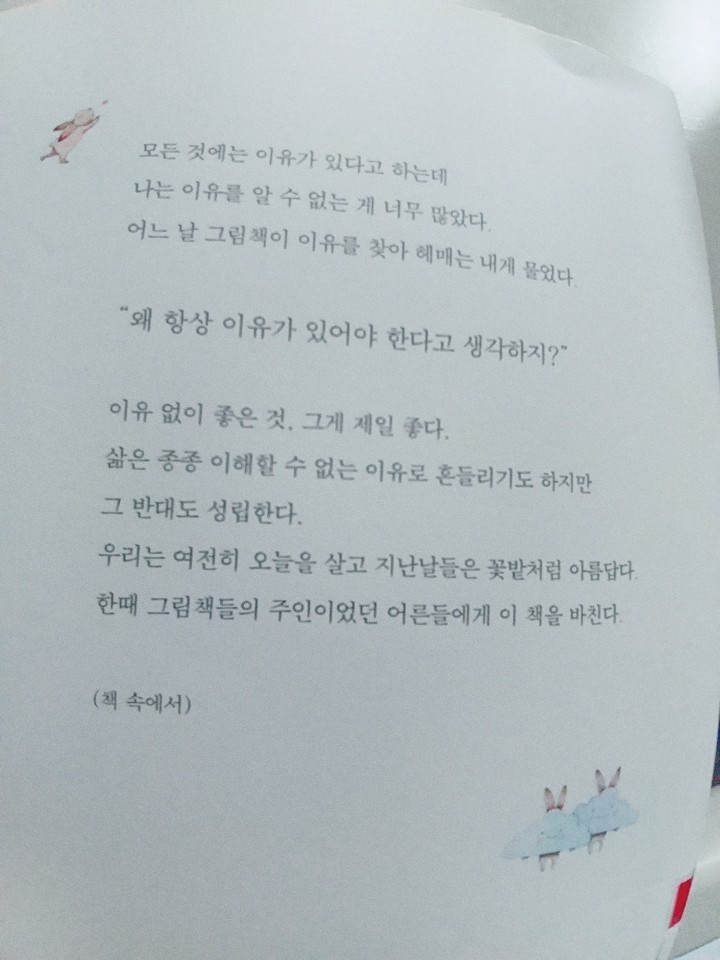 모든 것에는 이유가 있다고 하는데
나는 이유를 알 수 없는 게 너무 많았다.
어느 날 그림책이 이유를 찾아 헤매는 내게 물었다.
“왜 항상 이유가 있어야 한다고 생각하지?”
이유 없이 좋은 것, 그게 제일 좋다.
삶은 종종 이해할 수 없는 이유로 흔들리기도 하지만
그 반대도 성립한다.
우리는 여전히 오늘을 살고 지난날들은 꽃밭처럼 아름답다.
한때 그림책들의 주인이었던 어른들에게 이 책을 바친다.
(책 속에서)